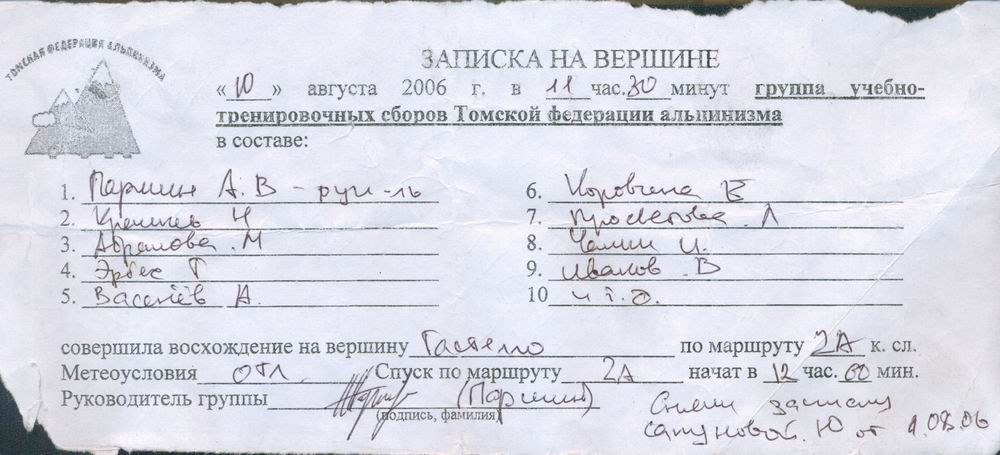 ТОМСКАЯ ФЕДЕРАЦИЯ АЛЬПИНИЗМА
ЗАПИСКА НА ВЕРШИНЕ
«10» августа 2006 г. в 11 час. 30 минут группа учебно-
тренировочных сборов Томской федерации альпинизма
в составе:
1. Паршин А.В - рук-ль
2. Ч
3. Абрамова. М
4. Эрбес Т
5. Васелёв А.
6. Коровкина Е
7. Л
8. И.
9. Иванов. В
10 и т.д.
совершила восхождение на вершину Гастелло по маршруту 2А к. сл.
Метеоусловия отл. Спуск по маршруту 2А начат в 12 час. 00 мин.
Руководитель группы (Паршин)
(подпись, фамилия)
Сняли записку
Ю от 1.08.06